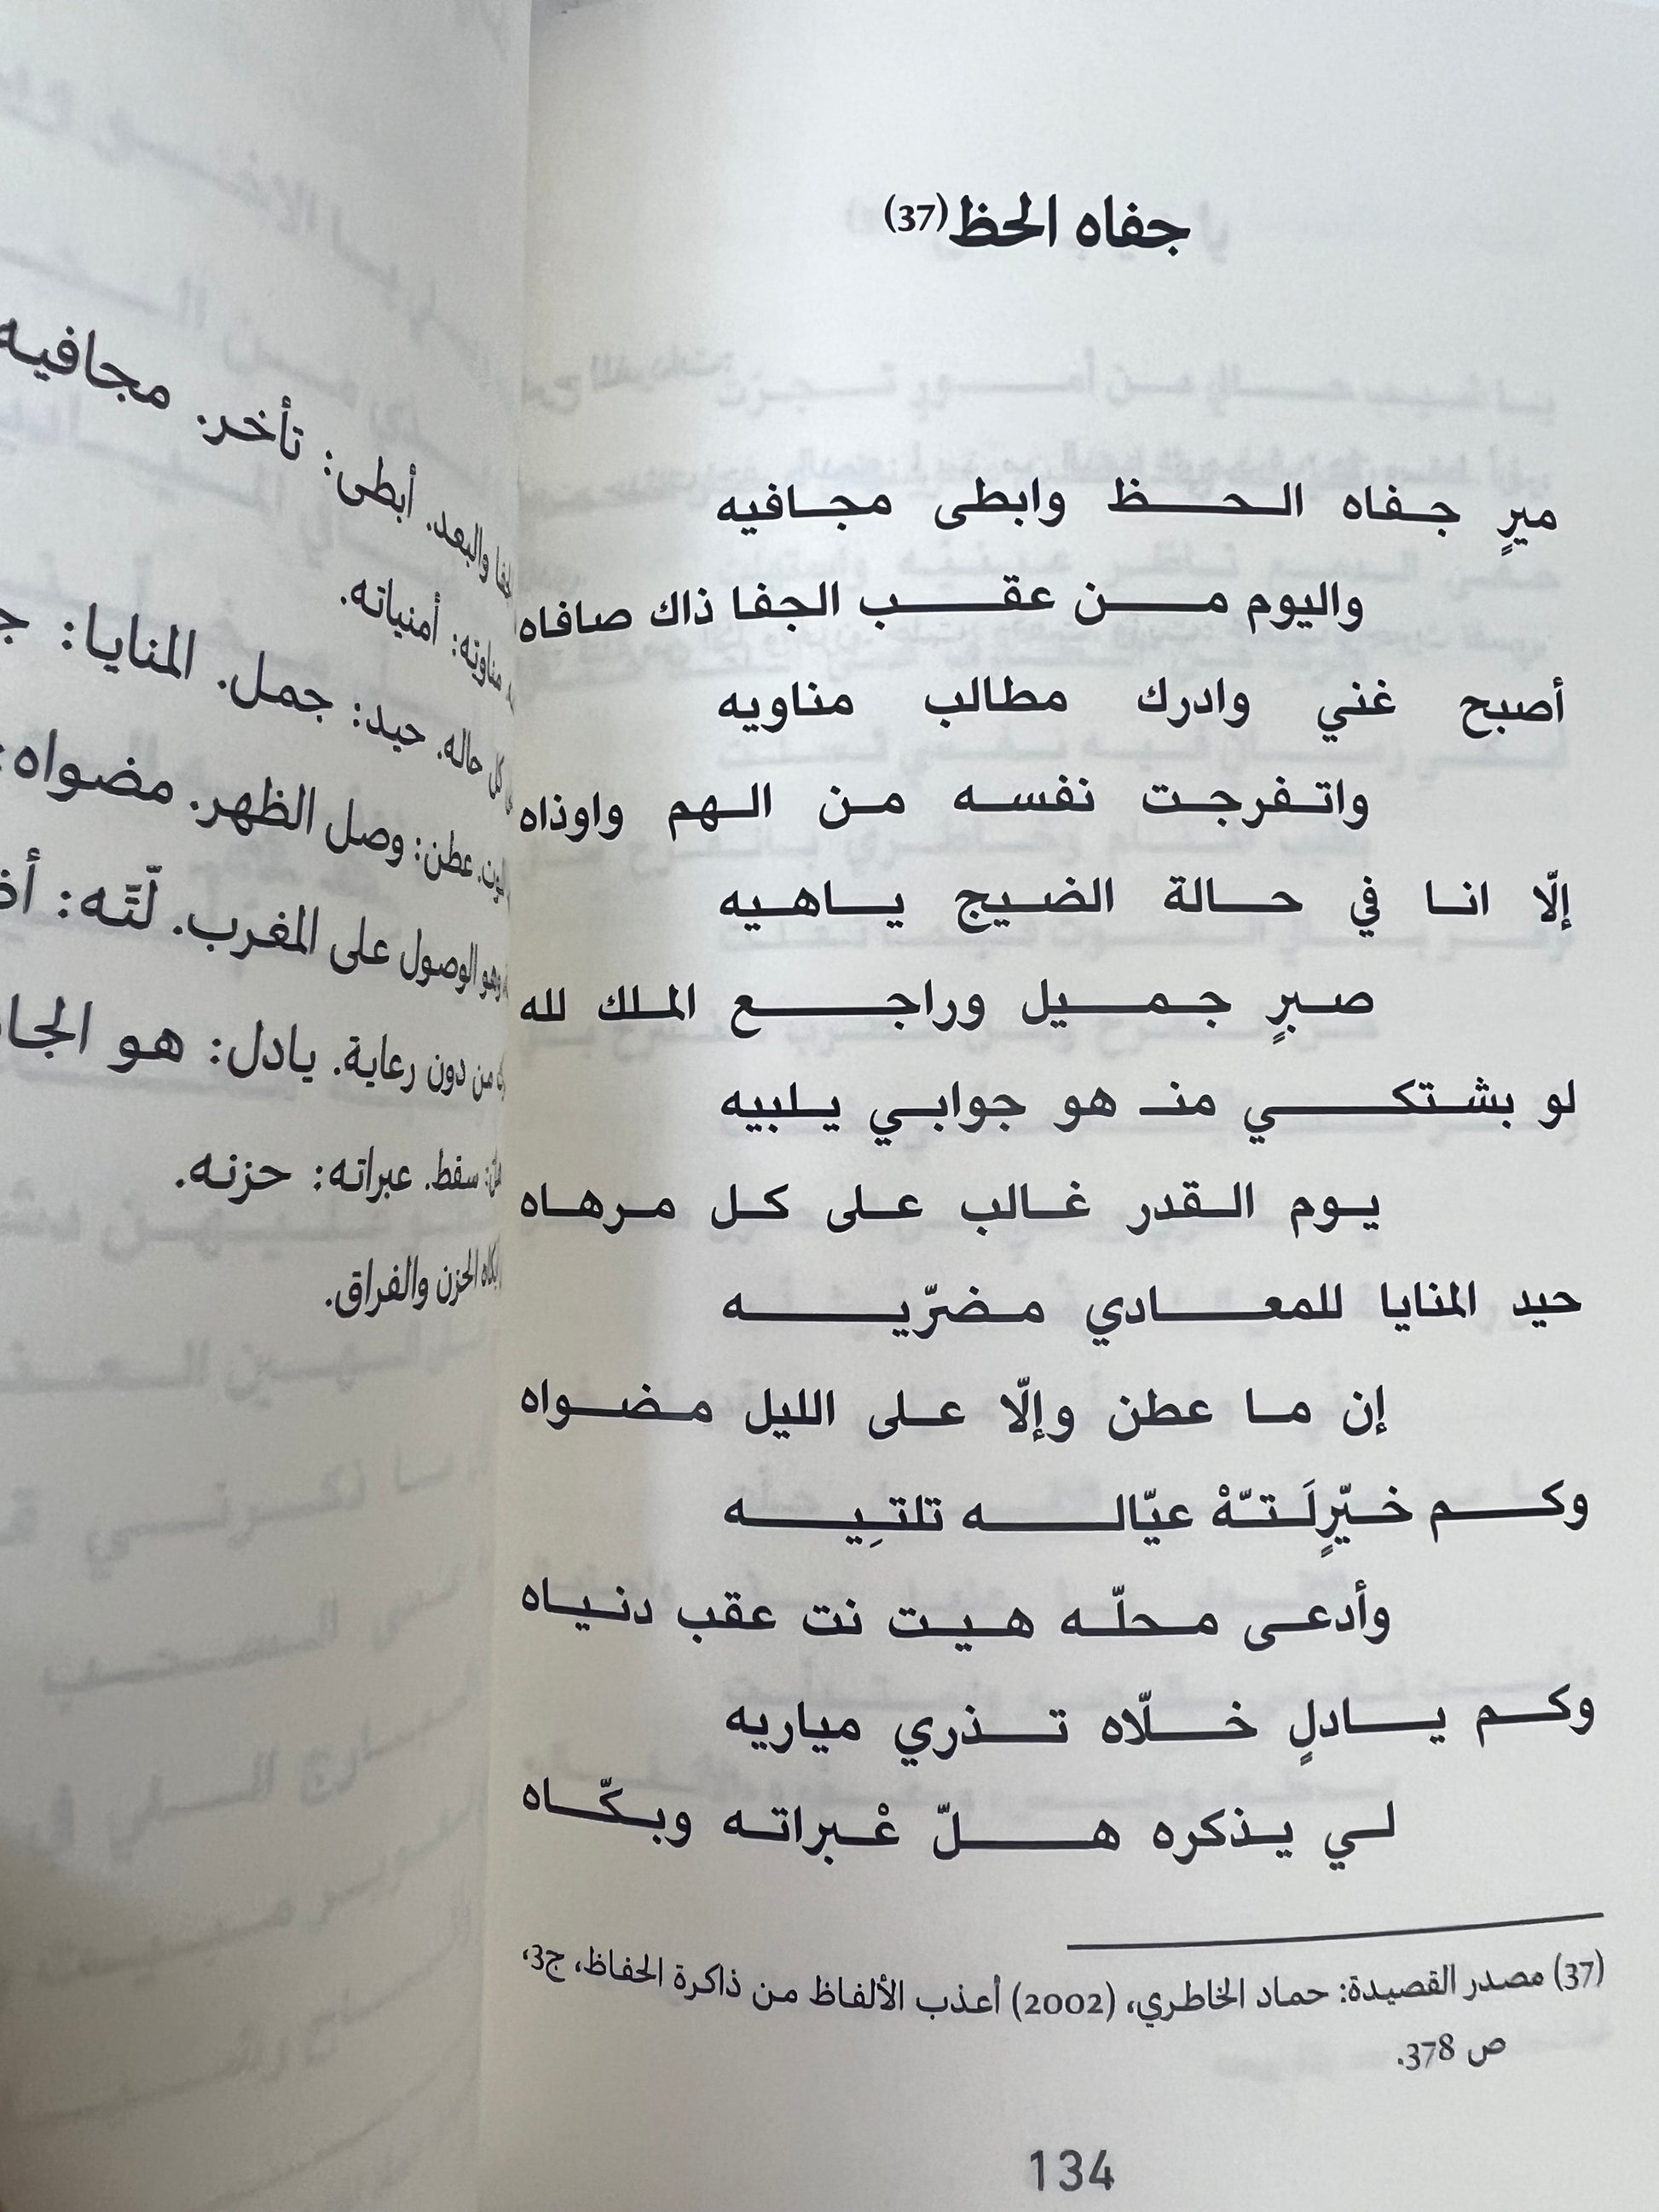 جفاه الحظ(37)
ميرٍ جفاه الحظ وابطى مجافيه
واليوم من عقب الجفا ذاك صافاه
أصبح غني وادرك مطالب مناويه
واتفرجت نفسه من الهم واوذاه
إلّا انا في حالة الضيج ياهيه
صبرٍ جميل وراجع الملك لله
لو بشتكي منـ هو جوابي يلبيه
يوم القدر غالب على كل مرهاه
حيد المنايا للمعادي مضرّيه
إن ما عطن وإلّا على الليل مضواه
وكم خيّرٍ لَتّهْ عيّاله تلتِيه
وأدعى محلّه هيت نت عقب دنياه
وكم يادلٍ خلّاه تذري مياريه
لي يذكره هلّ عْبراته وبكّاه
(37) مصدر القصيدة: حماد الخاطري، (2002) أعذب الألفاظ من ذاكرة الحفاظ، ج3،
ص 378.
134
والبعد. أبطى: تأخر. مجافيه
مناوته: أمنياته.
كل حاله. حيد: جمل. المنايا:
عطن: وصل الظهر. مضواه:
وهو الوصول على المغرب. لّتّه:
من دون رعاية. يادل: هو
سقط. عبراته: حزنه.
الحزن والفراق.